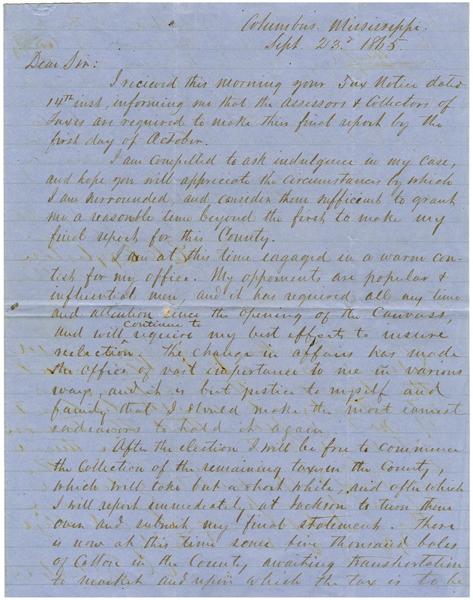 Columbus Mississippi.
Sept. 23d 1865.
Dear Sir:
I recieved this morning your Tax Notice dated
14th inst, informing me that the Assessors & Collectors of
Taxes are required to make their final report by the
first day of October.
I am compelled to ask indulgence in my case,
and hope you will appreciate the circumstances by which
I am surrounded, and consider them sufficient to grant
me a reasonable time beyond the first to make my
final report for this County.
I am at this time engaged in a warm con-
test for my office. My opponents are popular &
influential men, and it has required all my time
and attention since the opening of the Canvass,
and will continue to require my best efforts to insure
reelection. The change in affairs has made
the office of vast importance to me in various
ways, and it is but justice to myself and
family that I should make the most earnest
endeavors to hold it again.
After the election I will be free to commence
the Collection of the remaining taxes in the County,
which will take but a short while, and after which
I will report immediately at Jackson to turn them
over and submit my final statement. There
is now at this time some five thousand bales
of Cotton in the County awaiting transportation
to market and upon which the tax is to be